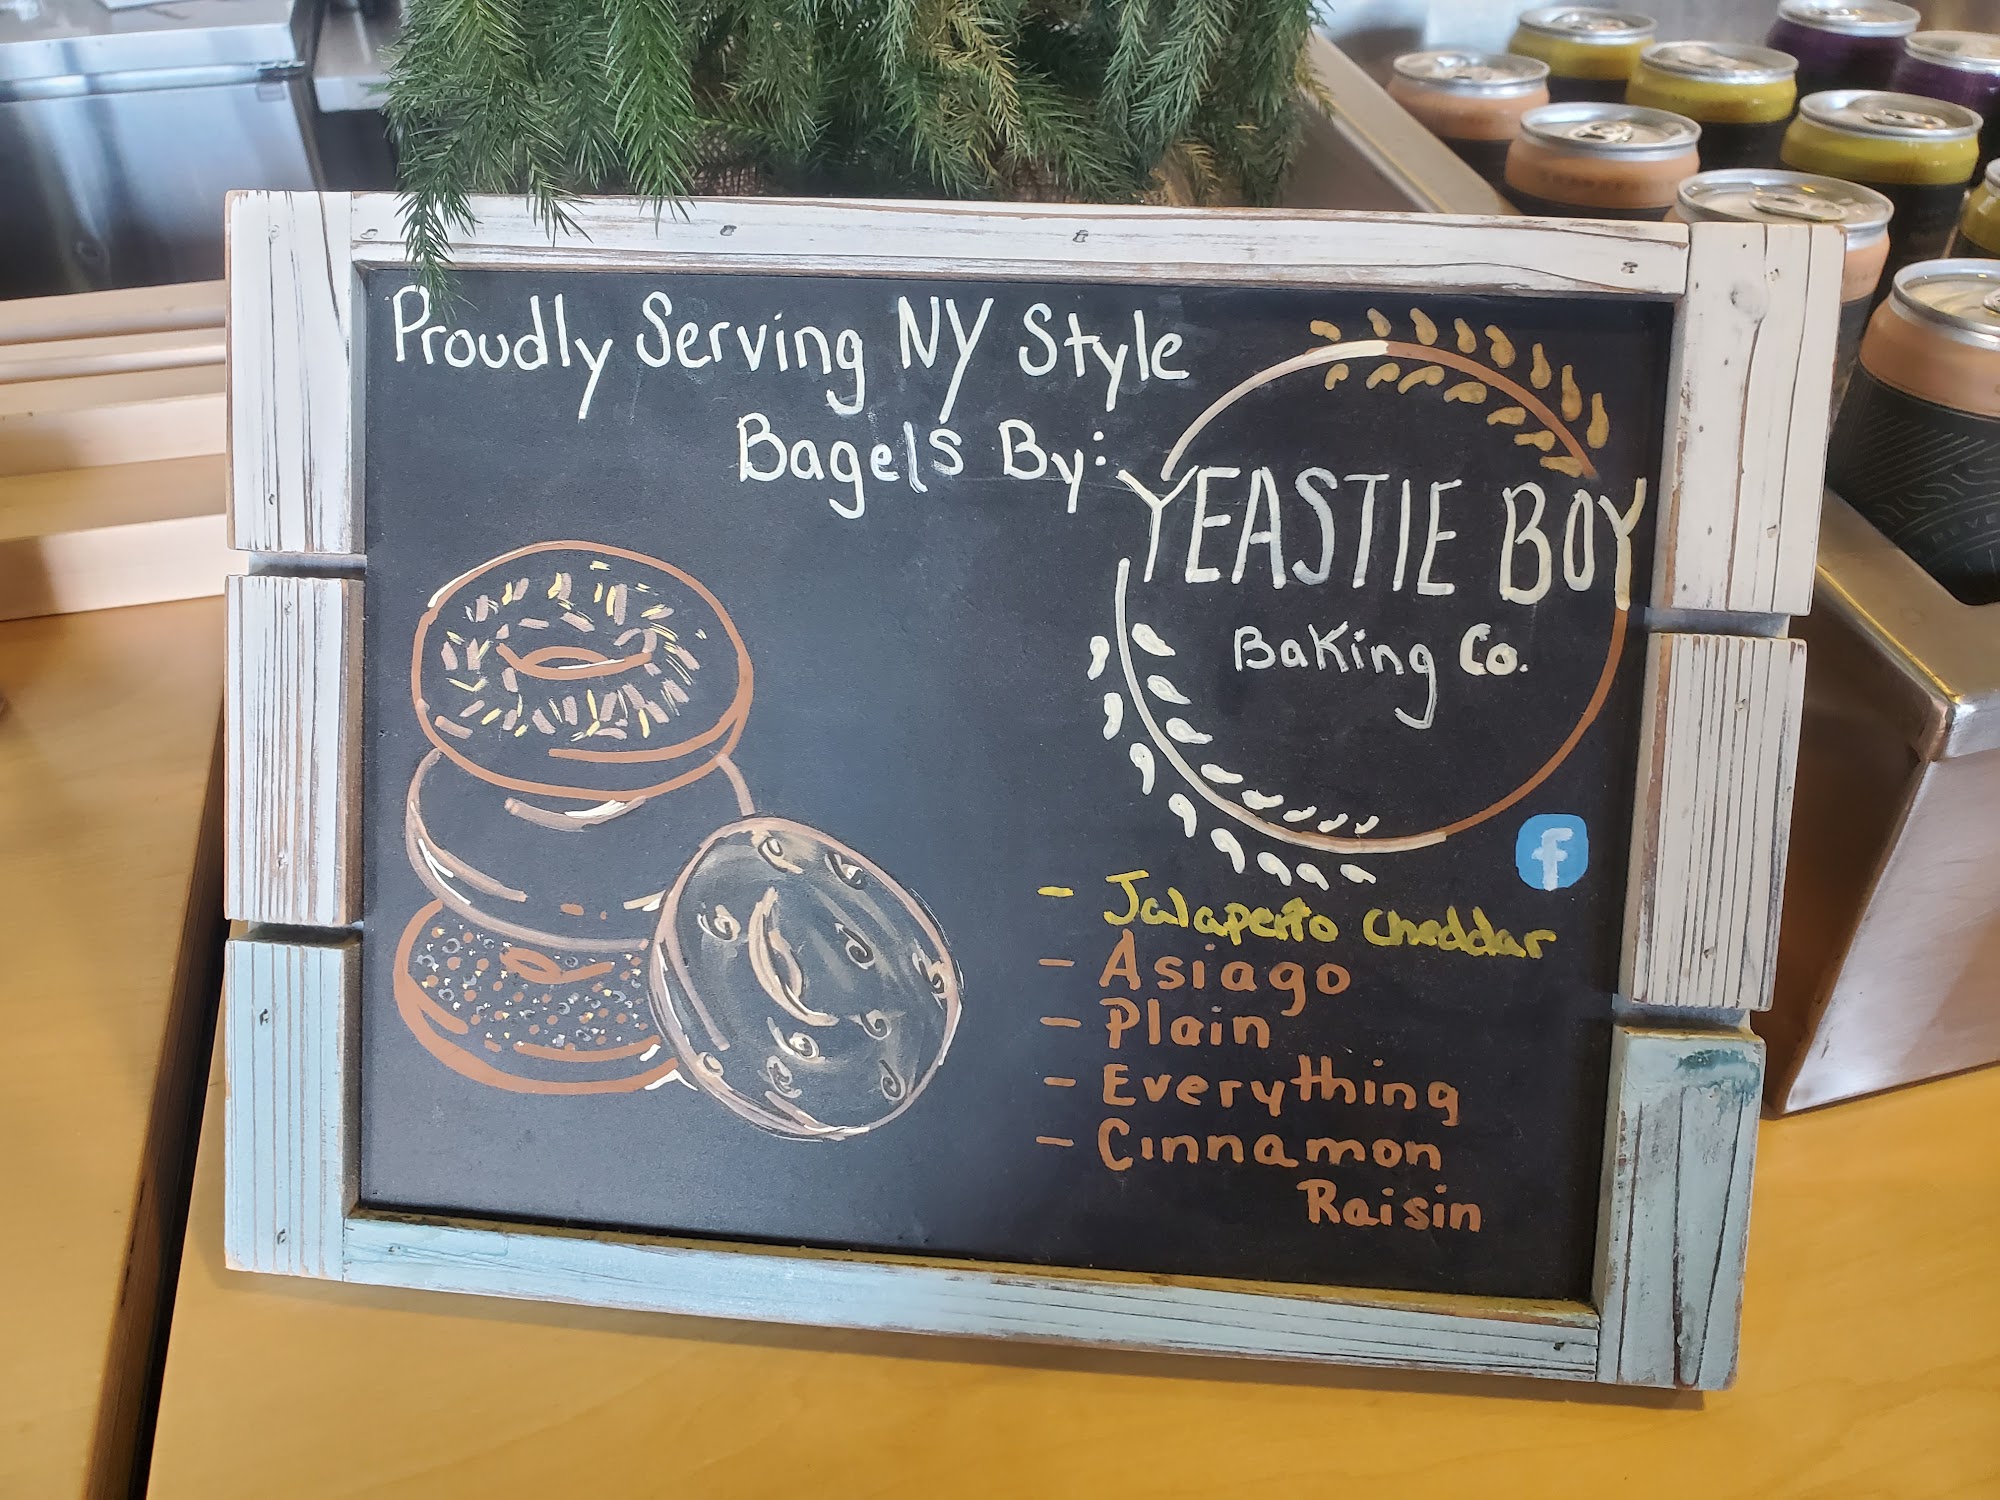 Proudly Serving NY Style
Bagels By:
YEASTIE BOY
Baking Co.
f
- Jalapeño Cheddar
- Asiago
- Plain
- Everything
- Cinnamon
Raisin